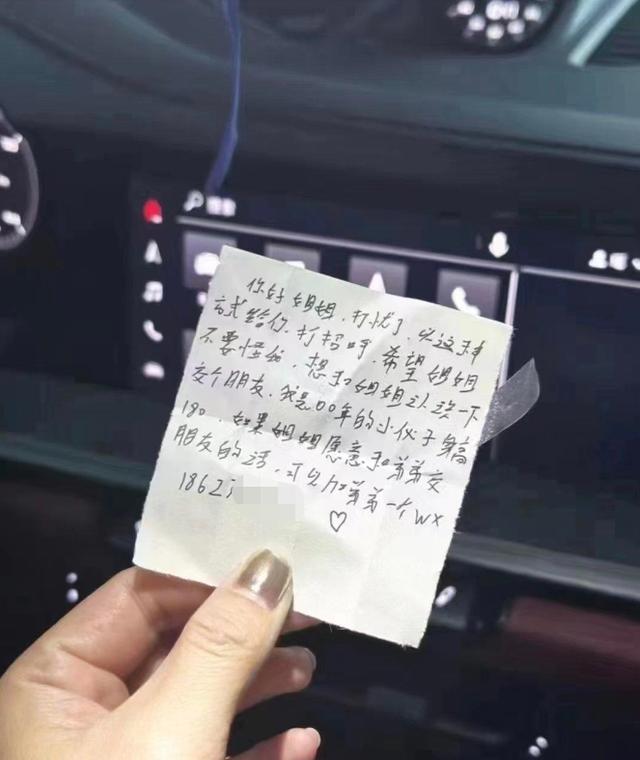 你好 姐姐，打扰了，以这种
方式给你 打招呼，希望 姐姐
不要怪如，想和 姐姐认识一下
交个朋友，我是00年的小伙子身高
180，如果姐姐愿意和弟弟交
朋友的话，可以加弟弟一个WX
1862